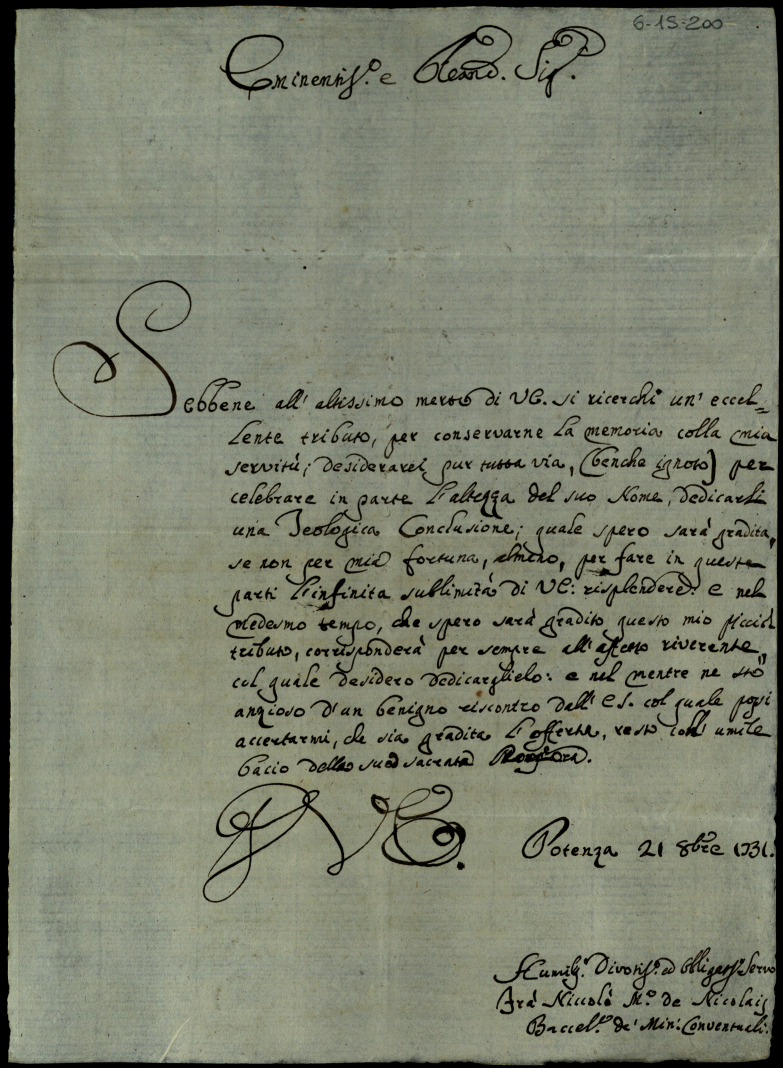 6-15-200
Eminentiss.o e Rever.d. Sig.r
Sebbene all' altissimo merto di VE. si ricerchi un' eccel=
lente tributo, per conservarne la memoria colla mia
servitù; desiderarei pur tutta via, (benche ignoto) per
celebrare in parte l'altezza del suo Nome, dedicarli
una Teologica Conclusione; quale spero sarà gradita,
se non per mia fortuna, almeno, per fare in queste
parti l'infinita sublimità di VE: risplendere: e nel
medesmo tempo, che spero sarà gradito questo mio picciol
tributo, corrisponderà per sempre all' affetto riverente,
col quale desidero dedicarglielo: e nel mentre ne stò
anzioso d'un benigno riscontro dall' E.S. col quale possi
accertarmi, che sia gradita l'offerta, resto coll' umile
bacio della sua sacrata
VE.
Potenza 21 8bre 1731.
Humiliss.o Divotiss.o ed Obligatiss.o Servo
Frà Niccolò M.a de Nicolais
Baccel.re de' Min: Conventuali.